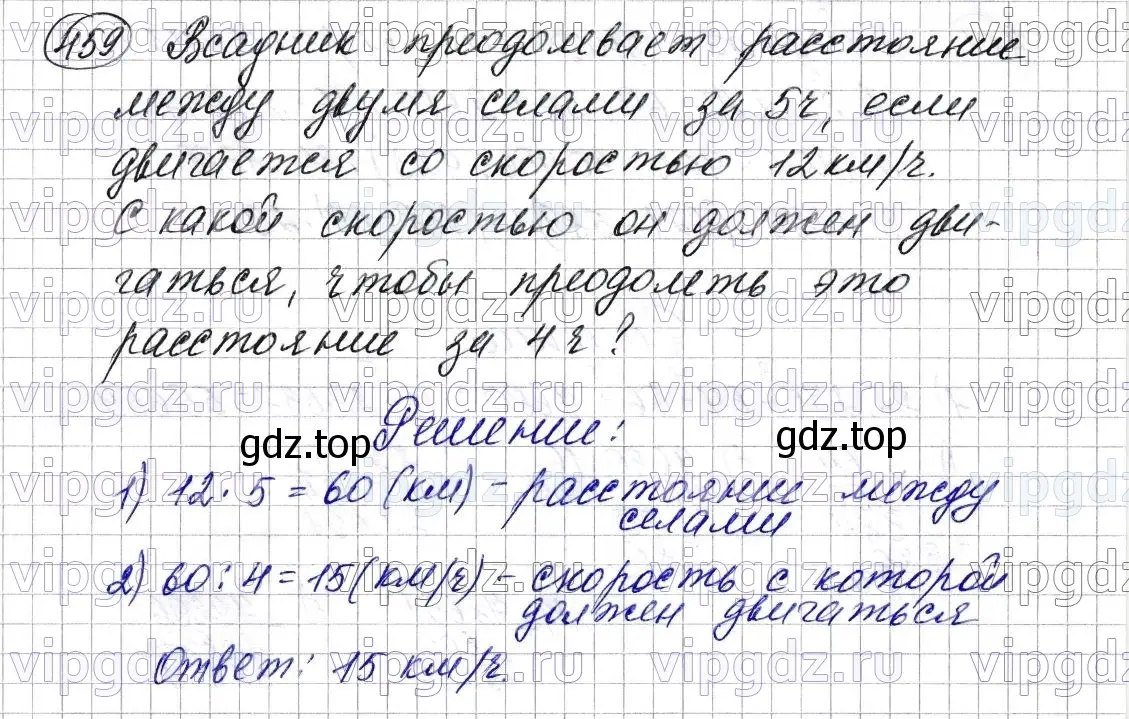 459 Всадник преодолевает расстояние
между двумя селами за 5ч, если
двигается со скоростью 12км/ч.
С какой скоростью он должен дви-
гаться, чтобы преодолеть это
расстояние за 4ч?
Решение:
gdz.top gdz.top
1) 12·5=60 (км) - расстояние между
селами
2) 60:4=15(км/ч) - скорость с которой
должен двигаться
Ответ: 15 км/ч.
vipgdz.ru